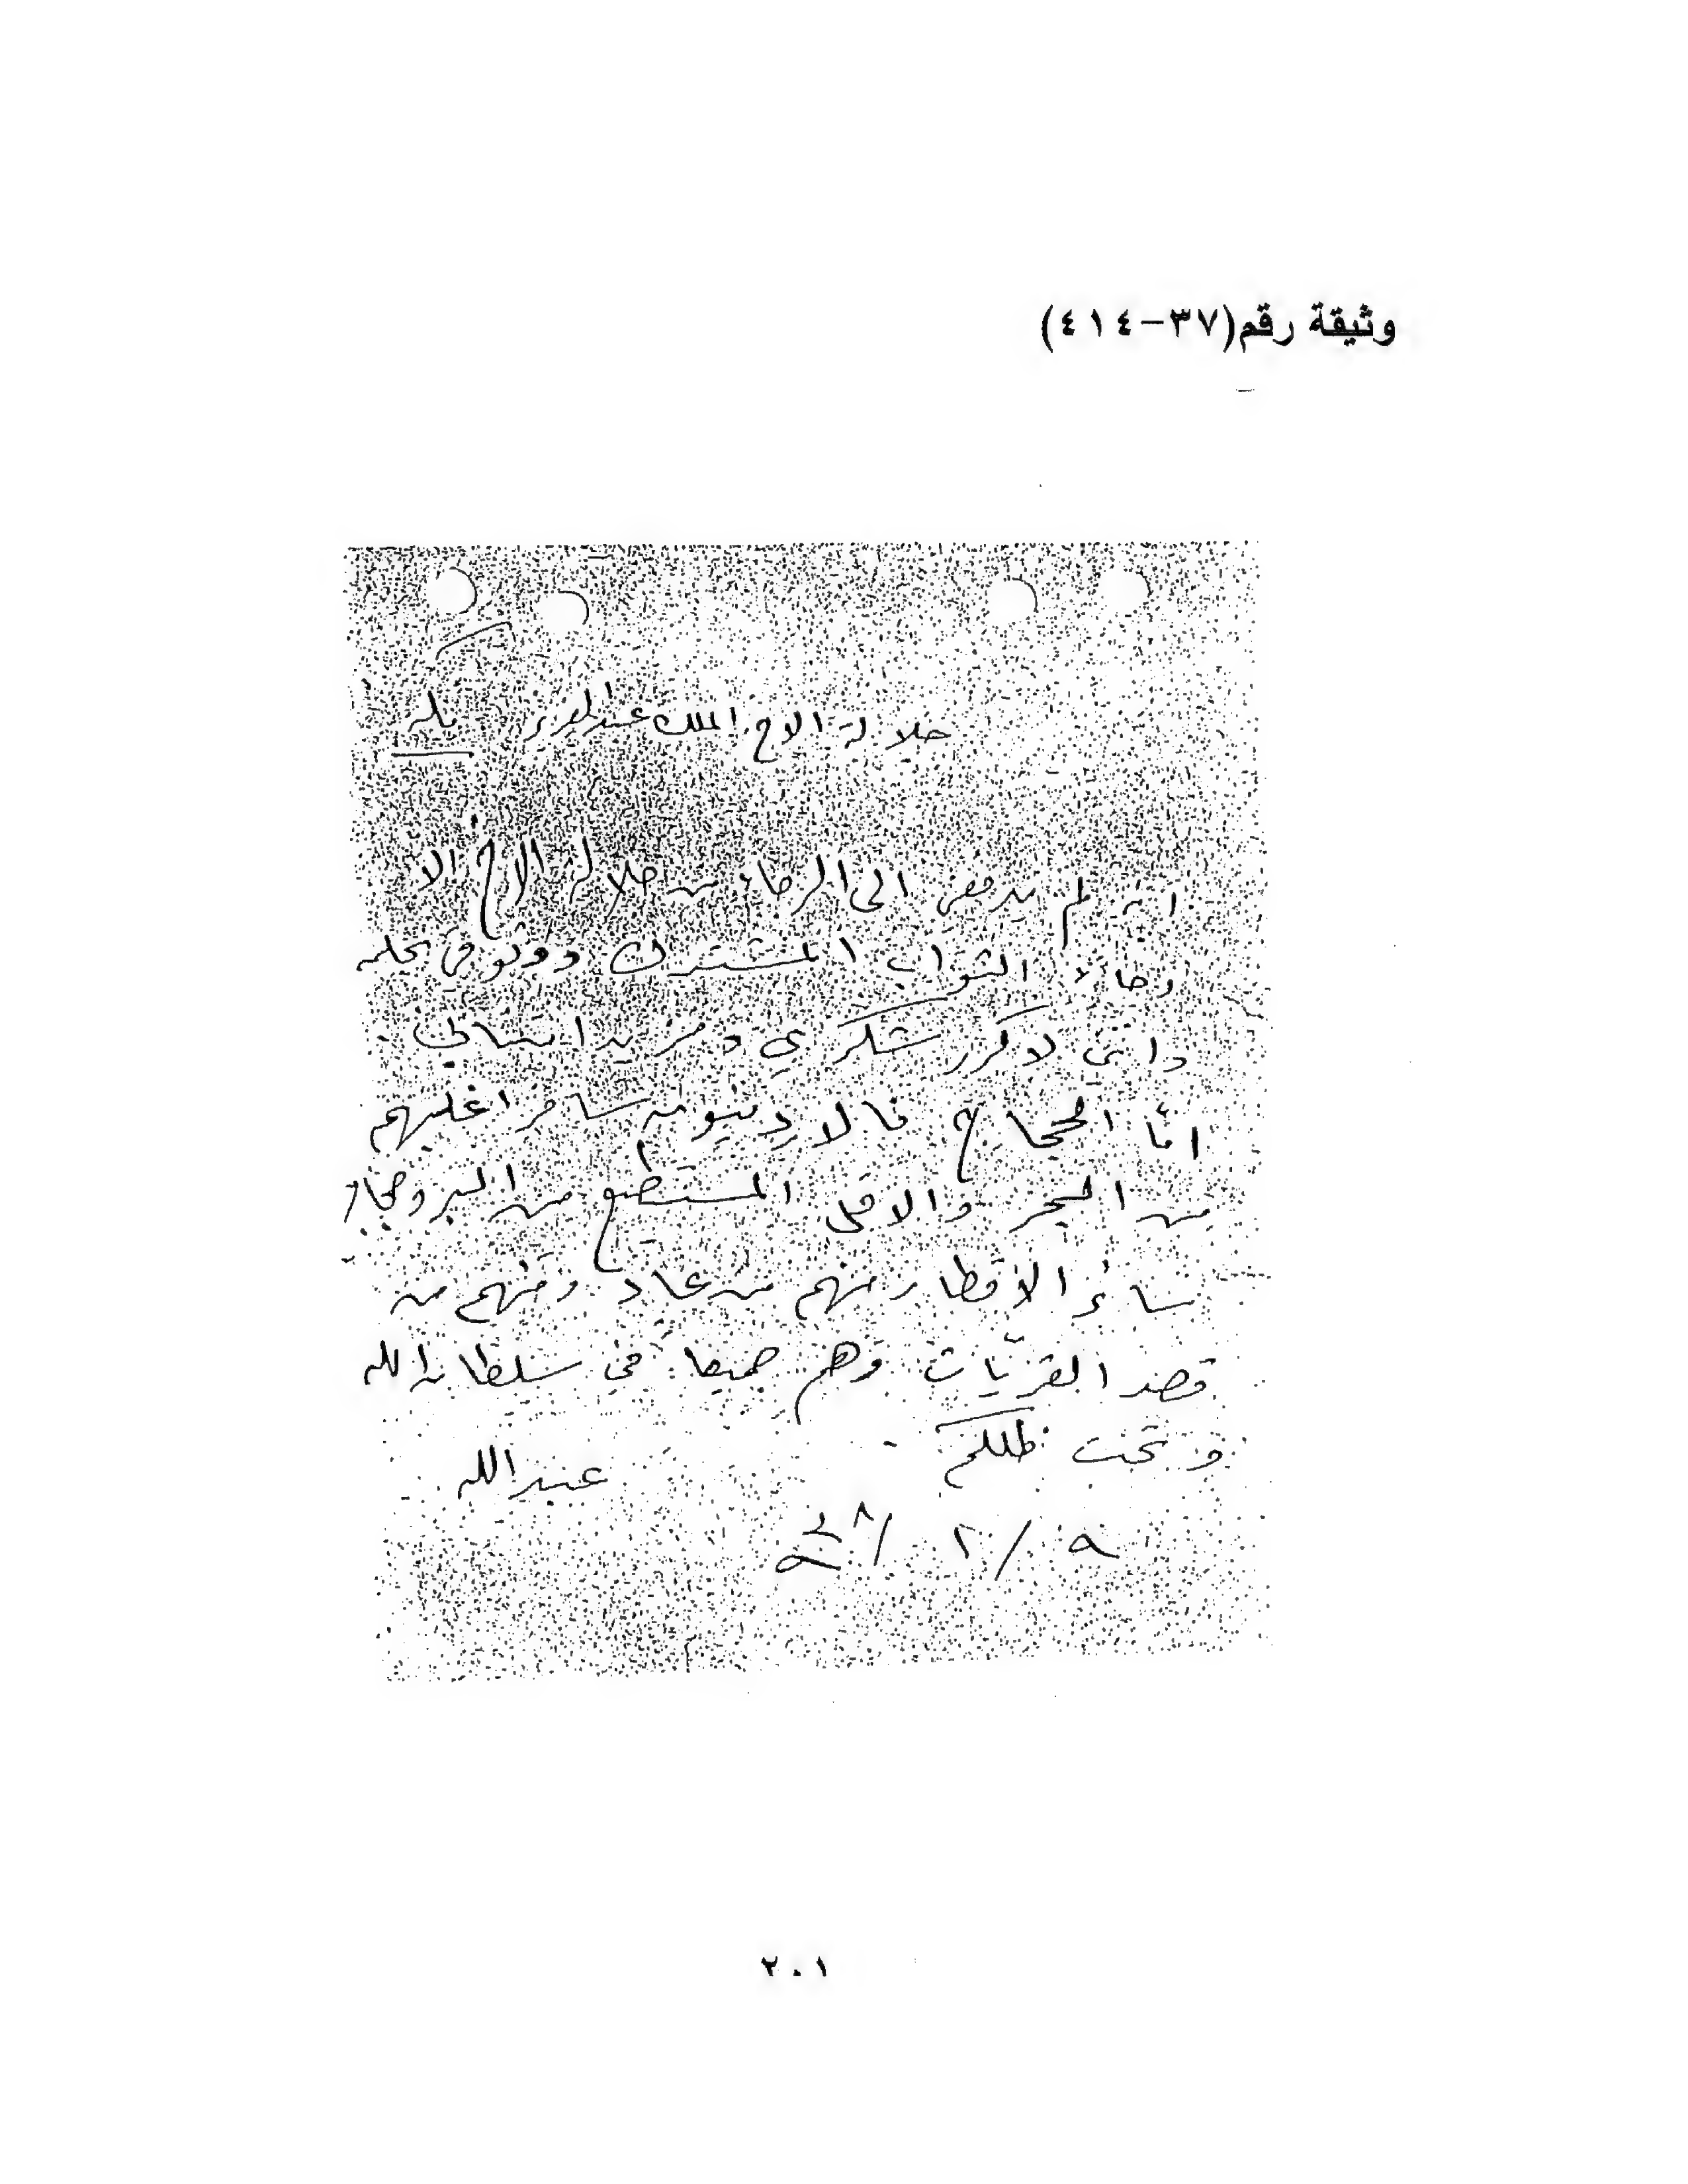 وثيقة رقم(٣٧-٤١٤)
جلالة الاخ الملك عبدالعزيز
انه لم يدفعني الى الرجاء من جلالة الاخ الا
رجاء الثواب المشترك ووثوقي بحلمه
وانني لاكرر شكري ومزيد امتناني .
امّا الحجاج فالاردنيون سافر اغلبهم
من البحر والاقل المستطيع من البر وحجاج
سائر الاقطار منهم من عاد ومنهم من
قصد القريّات وهم جميعا في سلطان الله
وتحت ظلكم .
عبدالله
٢٠١